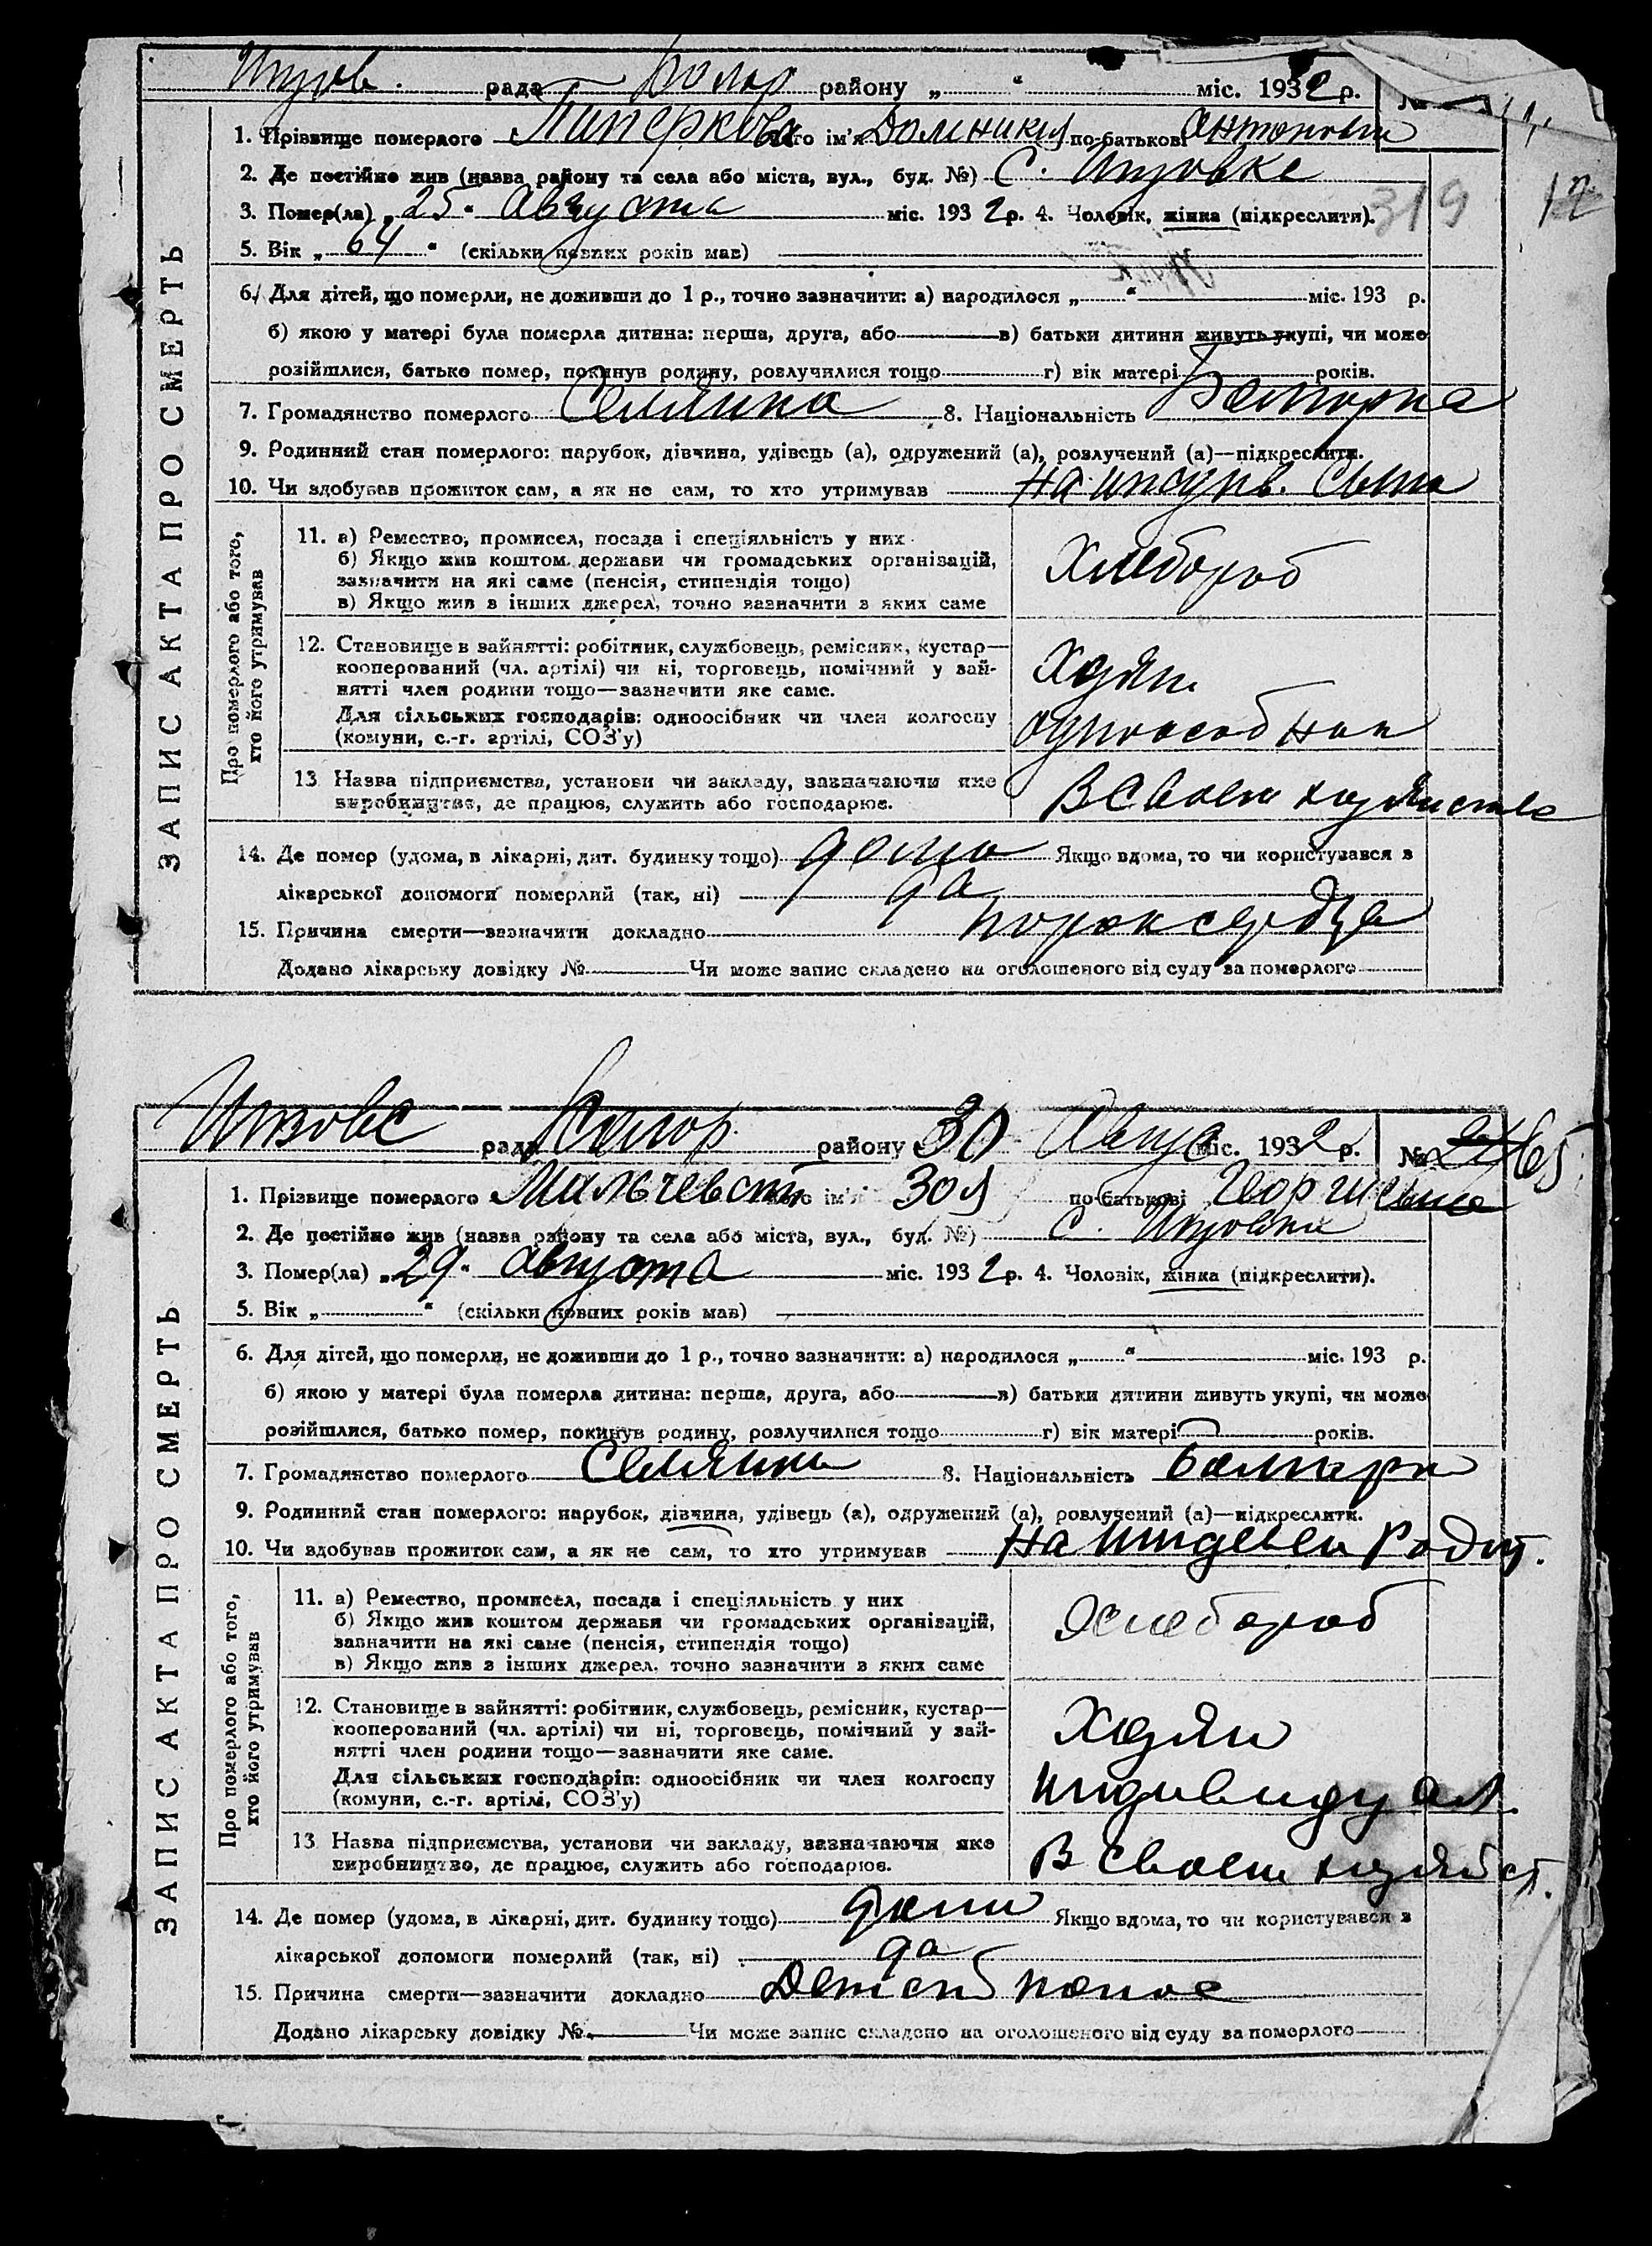 рада району „ “ міс. 1932 р. №
1. Прізвище померлого Пиперкова його ім'я Домникия по-батькові Антоновна
2. Де постійно жив (назва району та села або міста, вул., буд. №) С.
3. Помер(ла) „25“ Августа міс. 1932 р. 4. Чоловік, жінка (підкреслити).
319
12
5. Вік „64“ (скільки повних років мав)
6. Для дітей, що померли, не доживши до 1 р., точно зазначити: а) народилося „ “ міс. 193 р.
б) якою у матері була померла дитина: перша, друга, або в) батьки дитини живуть укупі, чи може
розійшлися, батько помер, покинув родину, розлучилися тощо г) вік матері років.
7. Громадянство померлого Селянка 8. Національність
9. Родинний стан померлого: парубок, дівчина, удівець (а), одружений (а), розлучений (а)—підкреслити.
10. Чи здобував прожиток сам, а як не сам, то хто утримував На сына
ЗАПИС АКТА ПРО СМЕРТЬ
Про померлого або того,
хто його утримував
11. а) Ремество, промисел, посада і спеціяльність у них
б) Якщо жив коштом держави чи громадських організацій,
зазначити на які саме (пенсія, стипендія тощо)
в) Якщо жив з інших джерел, точно зазначити з яких саме
Хлебороб
12. Становище в зайнятті: робітник, службовець, ремісник, кустар—
кооперований (чл. артілі) чи ні, торговець, помічний у зай-
нятті член родини тощо—зазначити яке саме.
Для сільських господарів: одноосібник чи член колгоспу
(комуни, с.-г. артілі, СОЗ'у)
Хозяин
одноособник
13 Назва підприємства, установи чи закладу, зазначаючи яке
виробництво, де працює, служить або господарює.
В своем хозяйстве
14. Де помер (удома, в лікарні, дит. будинку тощо) дома Якщо вдома, то чи користувався з
лікарської допомоги померлий (так, ні) да
15. Причина смерти—зазначити докладно порок сердца
Додано лікарську довідку № Чи може запис складено на оголошеного від суду за померлого
рада району 30 Авгус міс. 1932 р. № 65
1. Прізвище померлого його ім'я Зоя по-батькові Георгиевна
2. Де постійно жив (назва району та села або міста, вул., буд. №) С.
3. Помер(ла) „29“ августа міс. 1932 р. 4. Чоловік, жінка (підкреслити).
5. Вік „ “ (скільки повних років мав)
6. Для дітей, що померли, не доживши до 1 р., точно зазначити: а) народилося „ “ міс. 193 р.
б) якою у матері була померла дитина: перша, друга, або в) батьки дитини живуть укупі, чи може
розійшлися, батько помер, покинув родину, розлучилися тощо г) вік матері років.
7. Громадянство померлого Селянка 8. Національність болгарка
9. Родинний стан померлого: парубок, дівчина, удівець (а), одружений (а), розлучений (а)—підкреслити.
10. Чи здобував прожиток сам, а як не сам, то хто утримував На иждевен Родит.
ЗАПИС АКТА ПРО СМЕРТЬ
Про померлого або того,
хто його утримував
11. а) Ремество, промисел, посада і спеціяльність у них
б) Якщо жив коштом держави чи громадських організацій,
зазначити на які саме (пенсія, стипендія тощо)
в) Якщо жив з інших джерел, точно зазначити з яких саме
Хлебороб
12. Становище в зайнятті: робітник, службовець, ремісник, кустар—
кооперований (чл. артілі) чи ні, торговець, помічний у зай-
нятті член родини тощо—зазначити яке саме.
Для сільських господарів: одноосібник чи член колгоспу
(комуни, с.-г. артілі, СОЗ'у)
Хозяин
Индивидуал.
13 Назва підприємства, установи чи закладу, зазначаючи яке
виробництво, де працює, служить або господарює.
В своем хозяйст.
14. Де помер (удома, в лікарні, дит. будинку тощо) дома Якщо вдома, то чи користувався з
лікарської допомоги померлий (так, ні) да
15. Причина смерти—зазначити докладно Детск понос
Додано лікарську довідку №. Чи може запис складено на оголошеного від суду за померлого